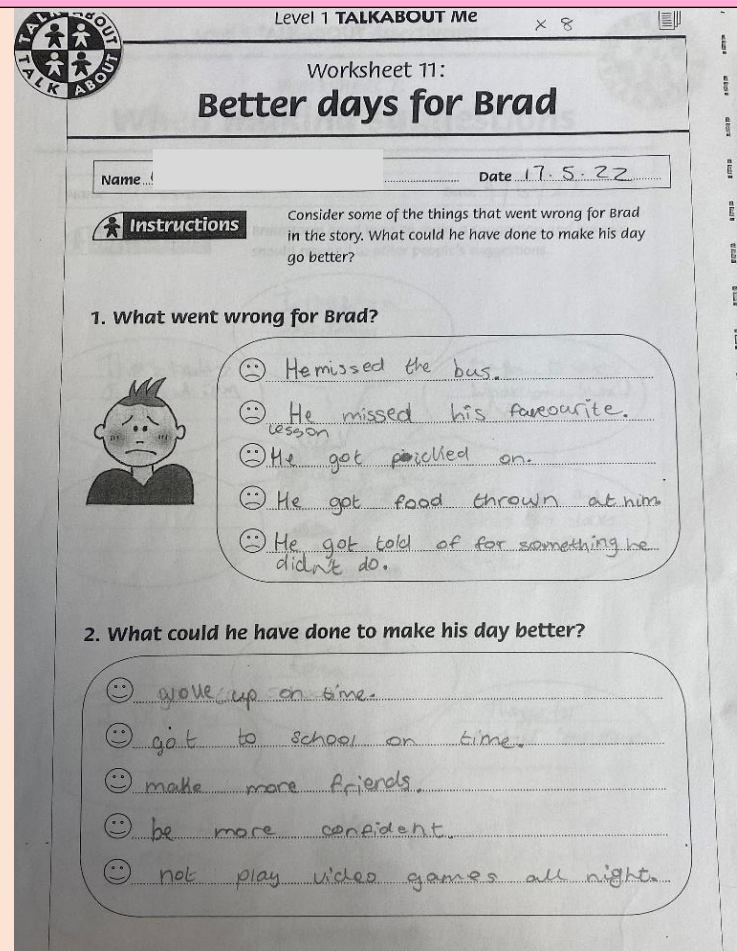 TALKABOUT TALKABOUT
Level 1 TALKABOUT Me
× 8
Worksheet 11:
Better days for Brad
Name
Date 17.5.22
Instructions
Consider some of the things that went wrong for Brad
in the story. What could he have done to make his day
go better?
1. What went wrong for Brad?
He missed the bus.
He missed his faveourite.
lesson
He got picked on.
He got food thrown at him
He got told of for something he
didn't do.
2. What could he have done to make his day better?
up on time.
got to school on time.
make more friends.
be more confident.
not play video games all night.